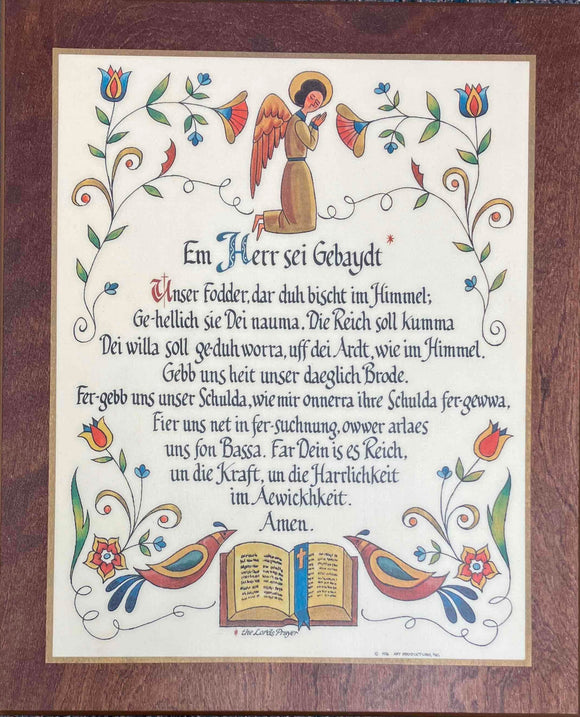 Em Herr sei Gebaydt *
Unser Fodder, dar duh bischt im Himmel;
Ge-hellich sie Dei nauma. Die Reich soll kumma
Dei willa soll ge-duh worra, uff dei Ardt, wie im Himmel.
Gebb uns heit unser daeglich Brode.
Fer-gebb uns unser Schulda, wie mir onnerra ihre Schulda fer-gewwa,
Fier uns net in fer-suchnung, owwer arlaes
uns fon Bassa. Far Dein is es Reich,
un die Kraft, un die Harrlichkeit
im Aewickhkeit.
Amen.
* the Lords Prayer
© ART PRODUCTIONS, INC.